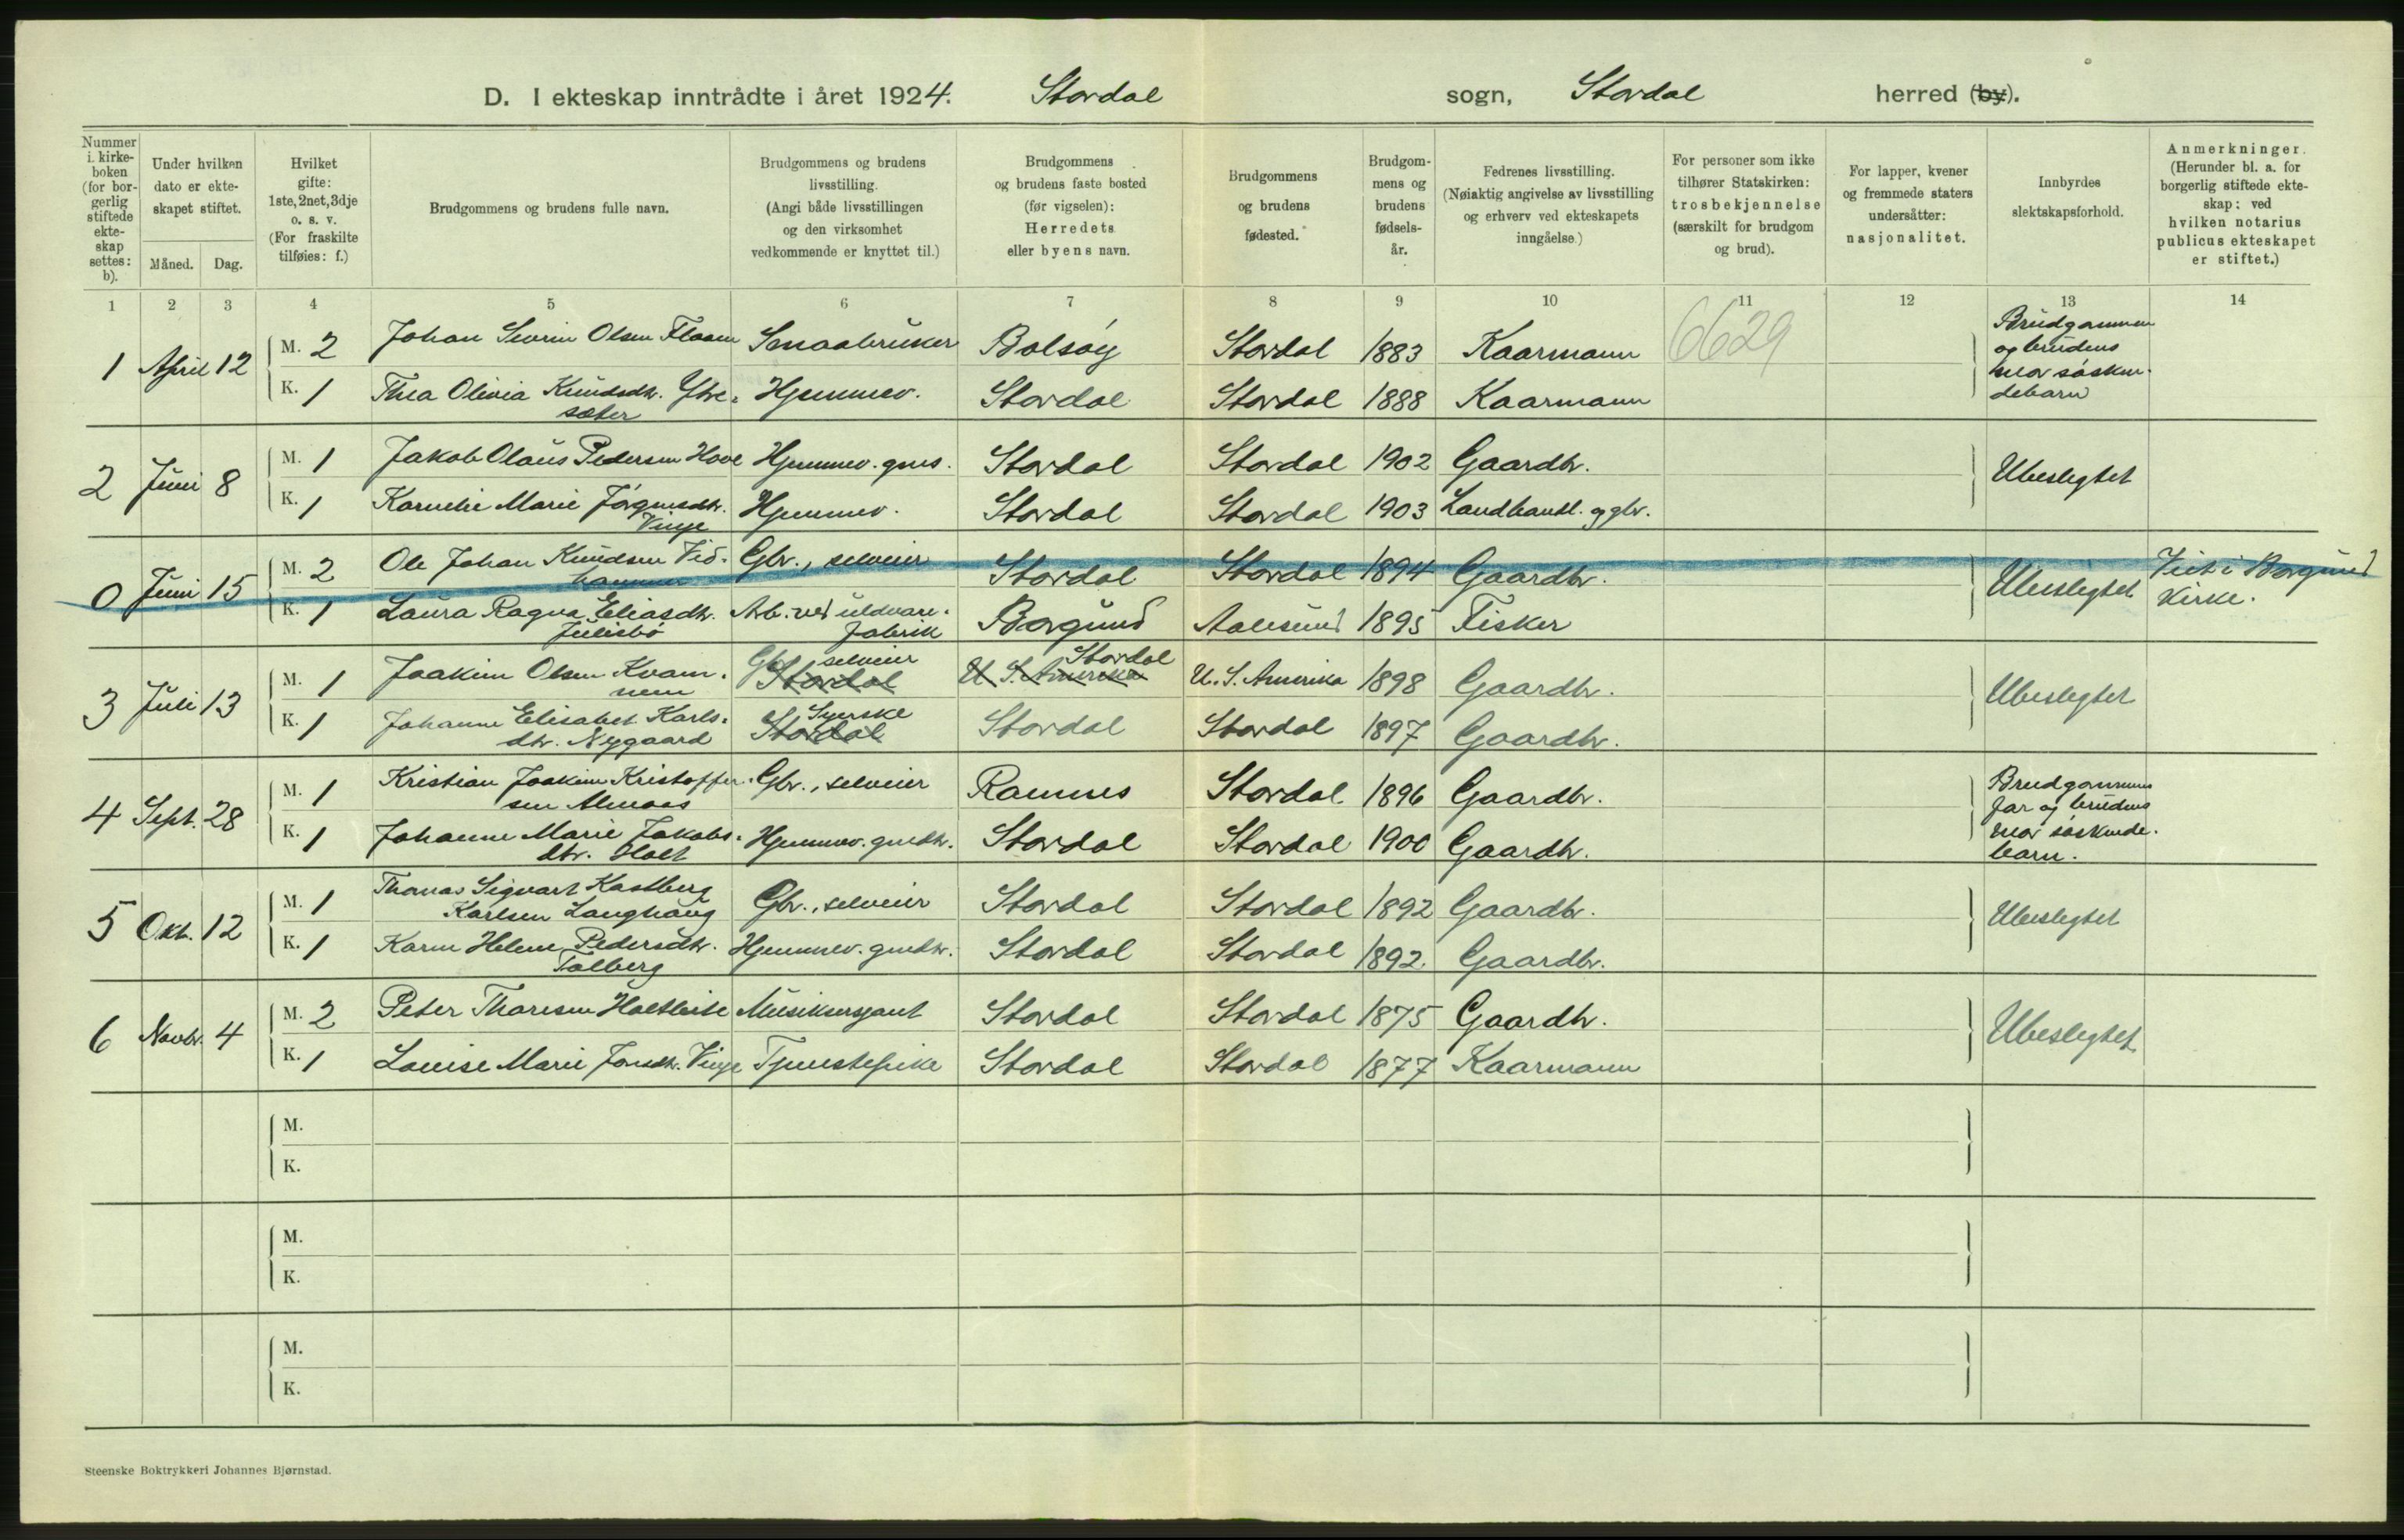 D. I ekteskap inntrådte i året 1924. Stordal sogn, Stordal herred (by).
Nummer i. kirkeboken (for borgerlig stiftede ekteskap settes: b).
Under hvilken dato er ekteskapet stiftet.
Måned.
Dag.
Hvilket gifte: 1ste, 2net, 3dje o. s. v. (For fraskilte tilføies: f.)
Brudgommens og brudens fulle navn.
Brudgommens og brudens livsstilling. (Angi både livsstillingen og den virksomhet vedkommende er knyttet til.)
Brudgommens og brudens faste bosted (før vigselen): Herredets eller byens navn.
Brudgommens og brudens fødested.
Brudgommens og brudens fødselsår.
Fedrenes livsstilling. (Nøiaktig angivelse av livsstilling og erhverv ved ekteskapets inngåelse.)
For personer som ikke tilhører Statskirken: trosbekjennelse (særskilt for brudgom og brud).
For lapper, kvener og fremmede staters undersåtter: nasjonalitet.
Innbyrdes slektskapsforhold.
Anmerkninger. (Herunder bl. a. for borgerlig stiftede ekteskap; ved hvilken notarius publicus ekteskapet er stiftet.)
1 2 3 4 5 6 7 8 9 10 11 12 13 14
1 April 12 M. 2 Johan Severin Olsen Flaam Smaabruker Bolsøy Stordal 1883 Kaarmann 6629 Brudgommen og brudens mor søskendebarn
K. 1 Thea Olivia Knudsdtr. Ytresæter Hjemmev. Stordal Stordal 1888 Kaarmann
2 Juni 8 M. 1 Jakob Olaus Pedersen Hove Hjemmev. gms. Stordal Stordal 1902 Gaardbr. Ubeslegtet
K. 1 Kornelie Marie Jørgensdtr. Vinje Hjemmev. Stordal Stordal 1903 Landhandl. og gbr.
0 Juni 15 M. 2 Ole Johan Knudsen Vidhammer Gbr., selveier Stordal Stordal 1894 Gaardbr. Ubeslegtet Viet i Borgund Kirke.
K. 1 Laura Ragna Eliasdtr. Julisbø Arb. ved uldvarefabrik Borgund Aalesund 1895 Fisker
3 Juli 13 M. 1 Joakim Olsen Kvamnem Gbr selveier Stordal U. S. Amerika Stordal U. S. Amerika 1898 Gaardbr. Ubeslegtet
K. 1 Johanne Elisabet Karlsdtr. Nygaard Syerske Stordal Stordal Stordal 1897 Gaardbr.
4 Sept. 28 M. 1 Kristian Joakim Kristoffersen Almaas Gbr., selveier Ramnes Stordal 1896 Gaardbr. Brudgommens far og brudens mor søskendebarn.
K. 1 Johanne Marie Jakobsdtr. Holt Hjemmev. gmdtr. Stordal Stordal 1900 Gaardbr.
5 Okt. 12 M. 1 Thomas Sigvart Kastberg Karlsen Langhaug Gbr., selveier Stordal Stordal 1892 Gaardbr. Ubeslegtet
K. 1 Karen Helene Pedersdtr. Talberg Hjemmev. gmdtr. Stordal Stordal 1892 Gaardbr.
6 Novbr. 4 M. 2 Peter Thoresen Holtleite Musikersjant Stordal Stordal 1875 Gaardbr. Ubeslegtet
K. 1 Louise Marie Jonsdtr. Vinje Tjenestepike Stordal Stordal 1877 Kaarmann
M.
K.
M.
K.
M.
K.
Steenske Boktrykkeri Johannes Bjørnstad.